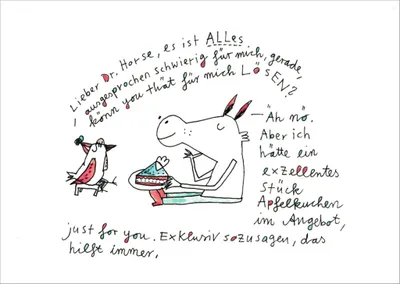 Lieber Dr. Horse, es ist ALLes
ausgesprochen schwierig für mich, gerade,
könn you thät für mich LöSEN?
– Äh nö.
Aber ich
hätte ein
exzellentes
Stück
Apfelkuchen
im Angebot,
just for you. Exklusiv sozusagen, das
hilft immer.